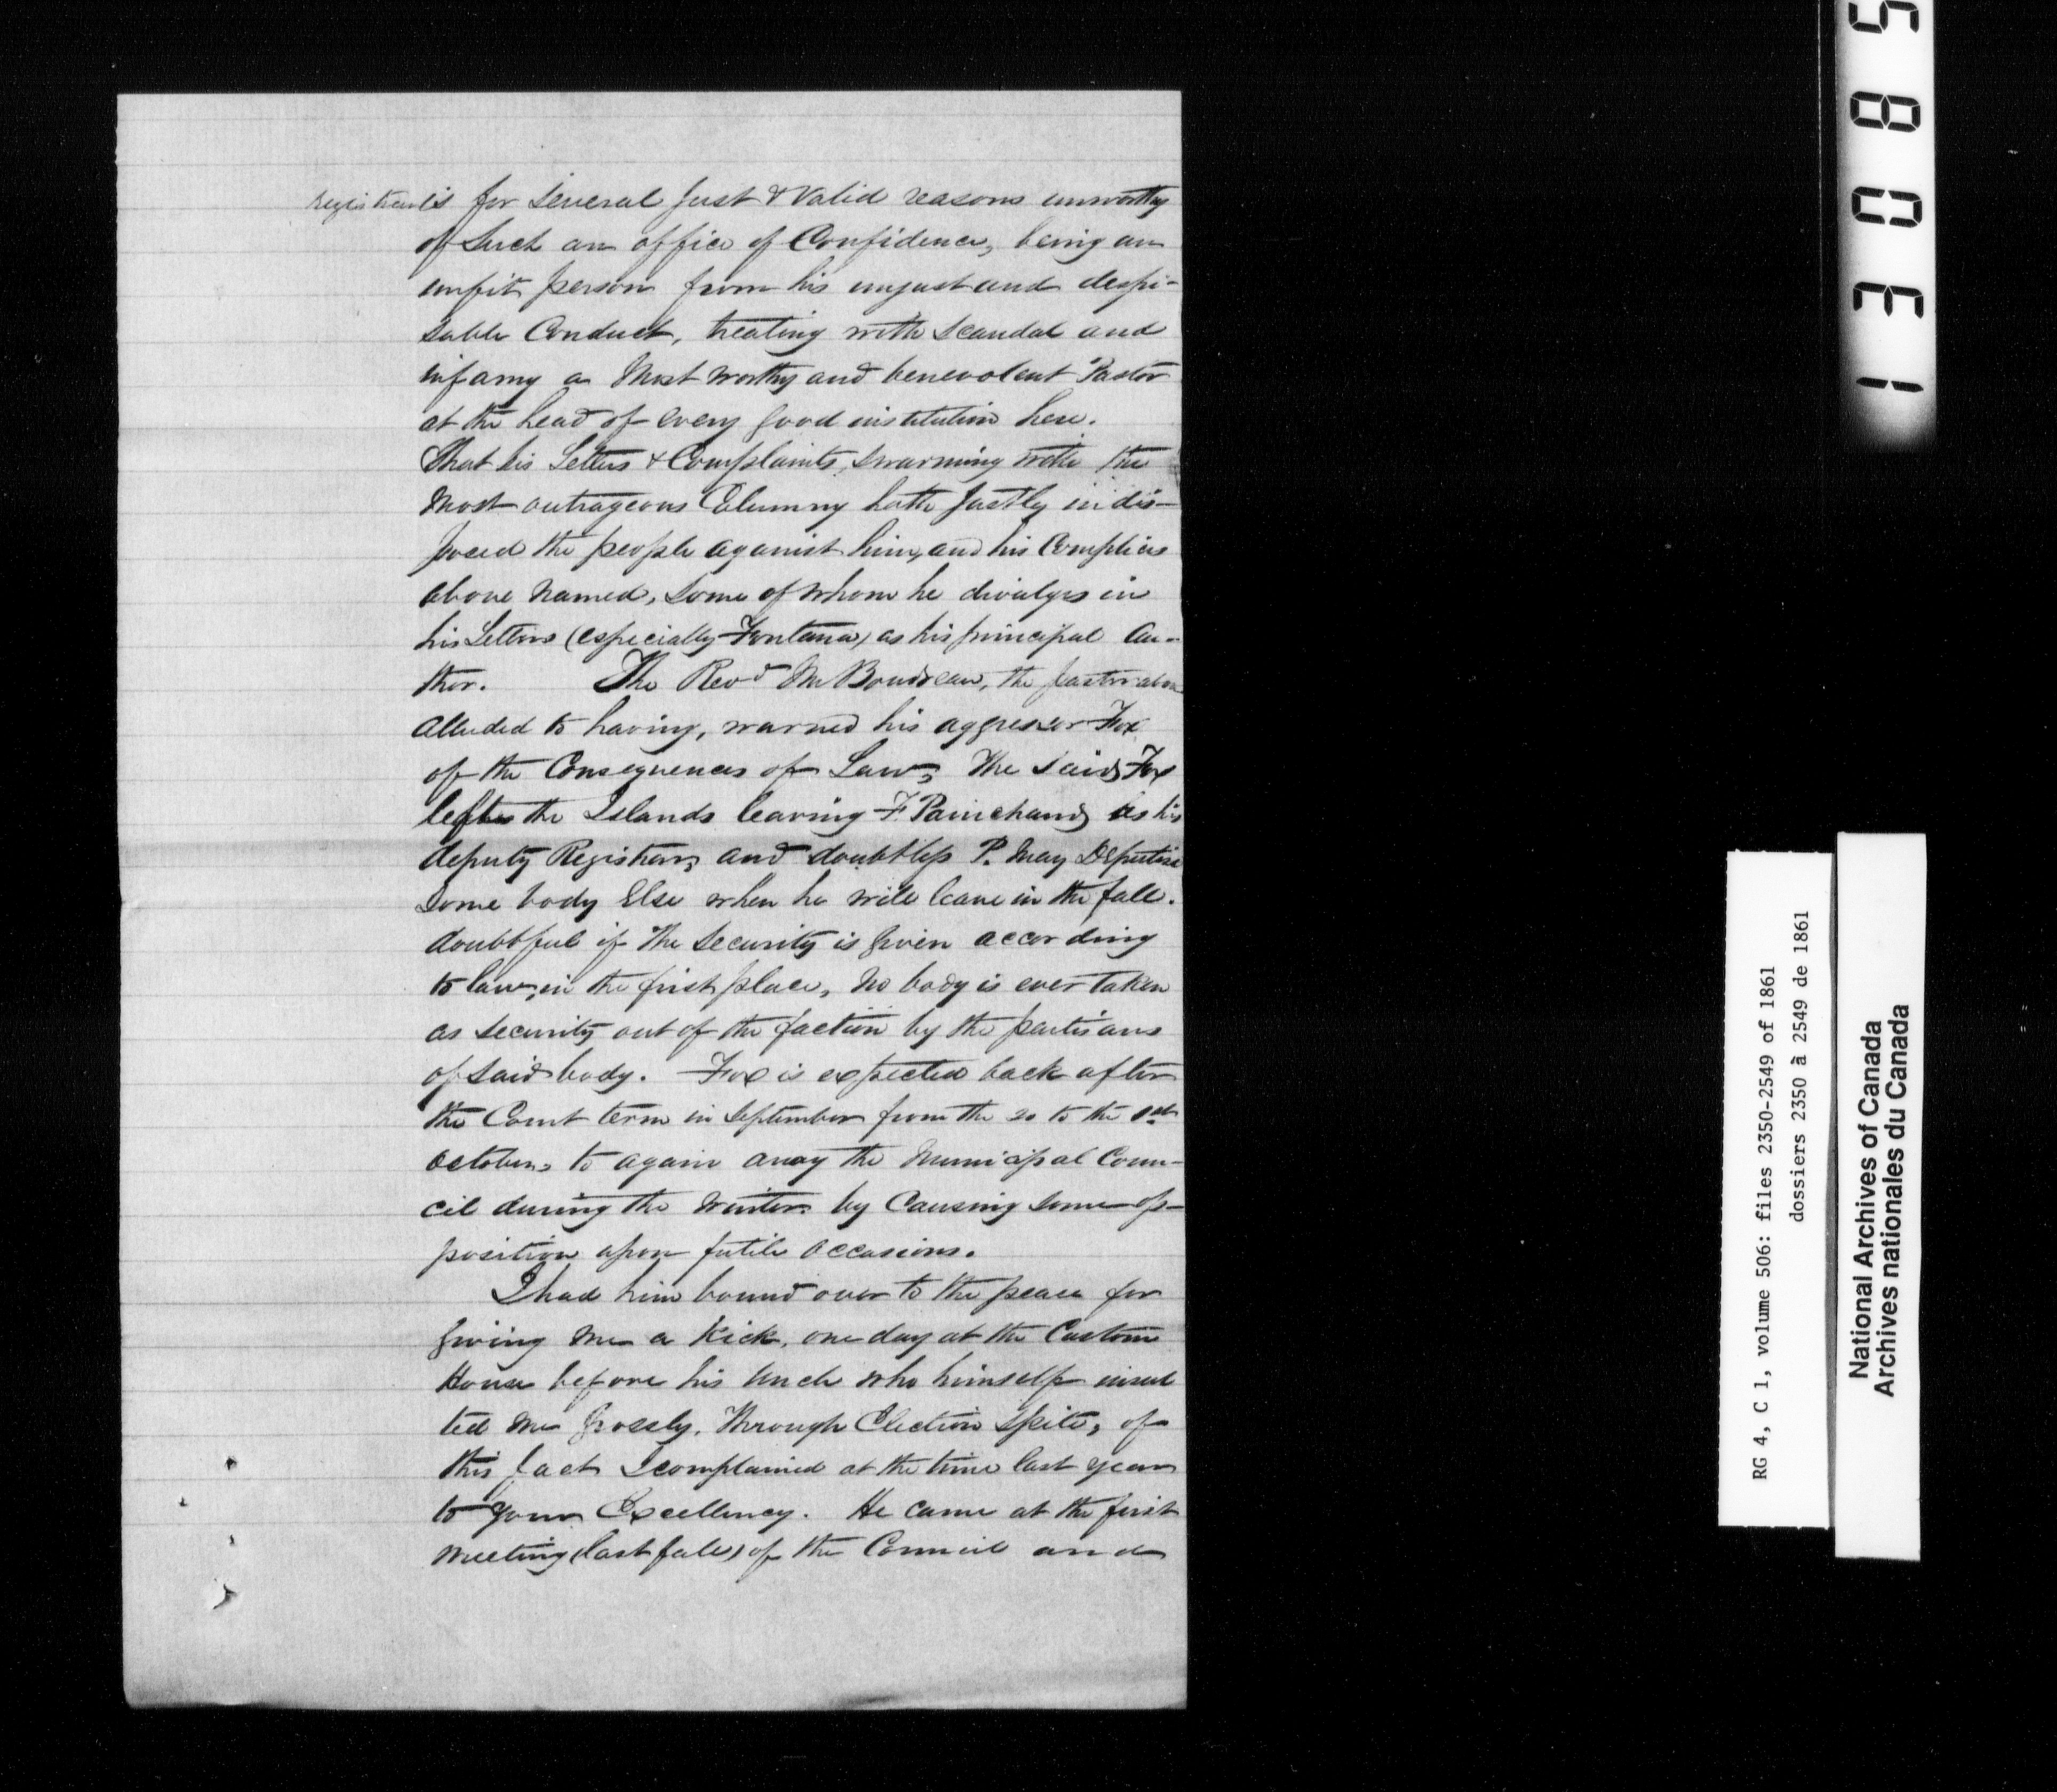 registrar is for several just & valid reasons unworthy
of such an office of Confidence, being an
unfit person from his unjust and despi-
sable Conduct, treating with scandal and
infamy a Most worthy and benevolent Pastor
at the head of every good institution here.
That his Letters & Complaints, swarming with the
most outrageous Calumny hath justly indis-
posed the people against him, and his Complices
above named, some of whom he divulges in
his Letters (especially Fontana) as his principal au-
thor. The Revd Mr Boudreau, the pastor above
alluded to having, warned his aggressor Fox
of the Consequences of Law, the said Fox
left the Islands leaving F. Painchaud as his
deputy Registrar, and doubtless P. may Deputise
some body Else when he will leave in the fall.
doubtful if the security is given according
to law, in the first place, no body is ever taken
as security out of the faction by the partisans
of said body. Fox is expected back after
the Court term in September from the 20 to the 1st
october, to again anoy the Municipal Coun-
cil during the winter by Causing some op-
position upon futile occasions.
I had him bound over to the peace for
giving me a kick, one day at the Custom
House before his Uncle who himself insul
ted me grossly, through Election spite, of
this fact I complained at the time last year
to your Excellency. He came at the first
meeting (last fall) of the Council and
5
8
0
3
1
RG 4, C 1, volume 506: files 2350-2549 of 1861
dossiers 2350 à 2549 de 1861
National Archives of Canada
Archives nationales du Canada